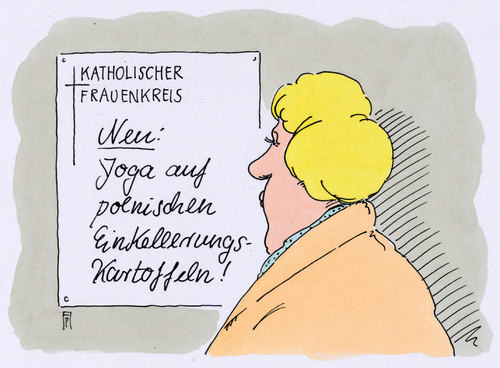 KATHOLISCHER
FRAUENKREIS
Neu:
Yoga auf
polnischen
Einkellerungs-
Kartoffeln!